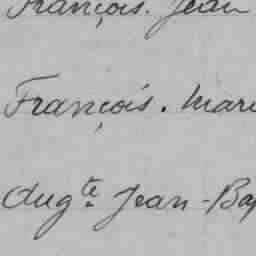 François. Jean
François. Mari
Aug^te Jean-Bap